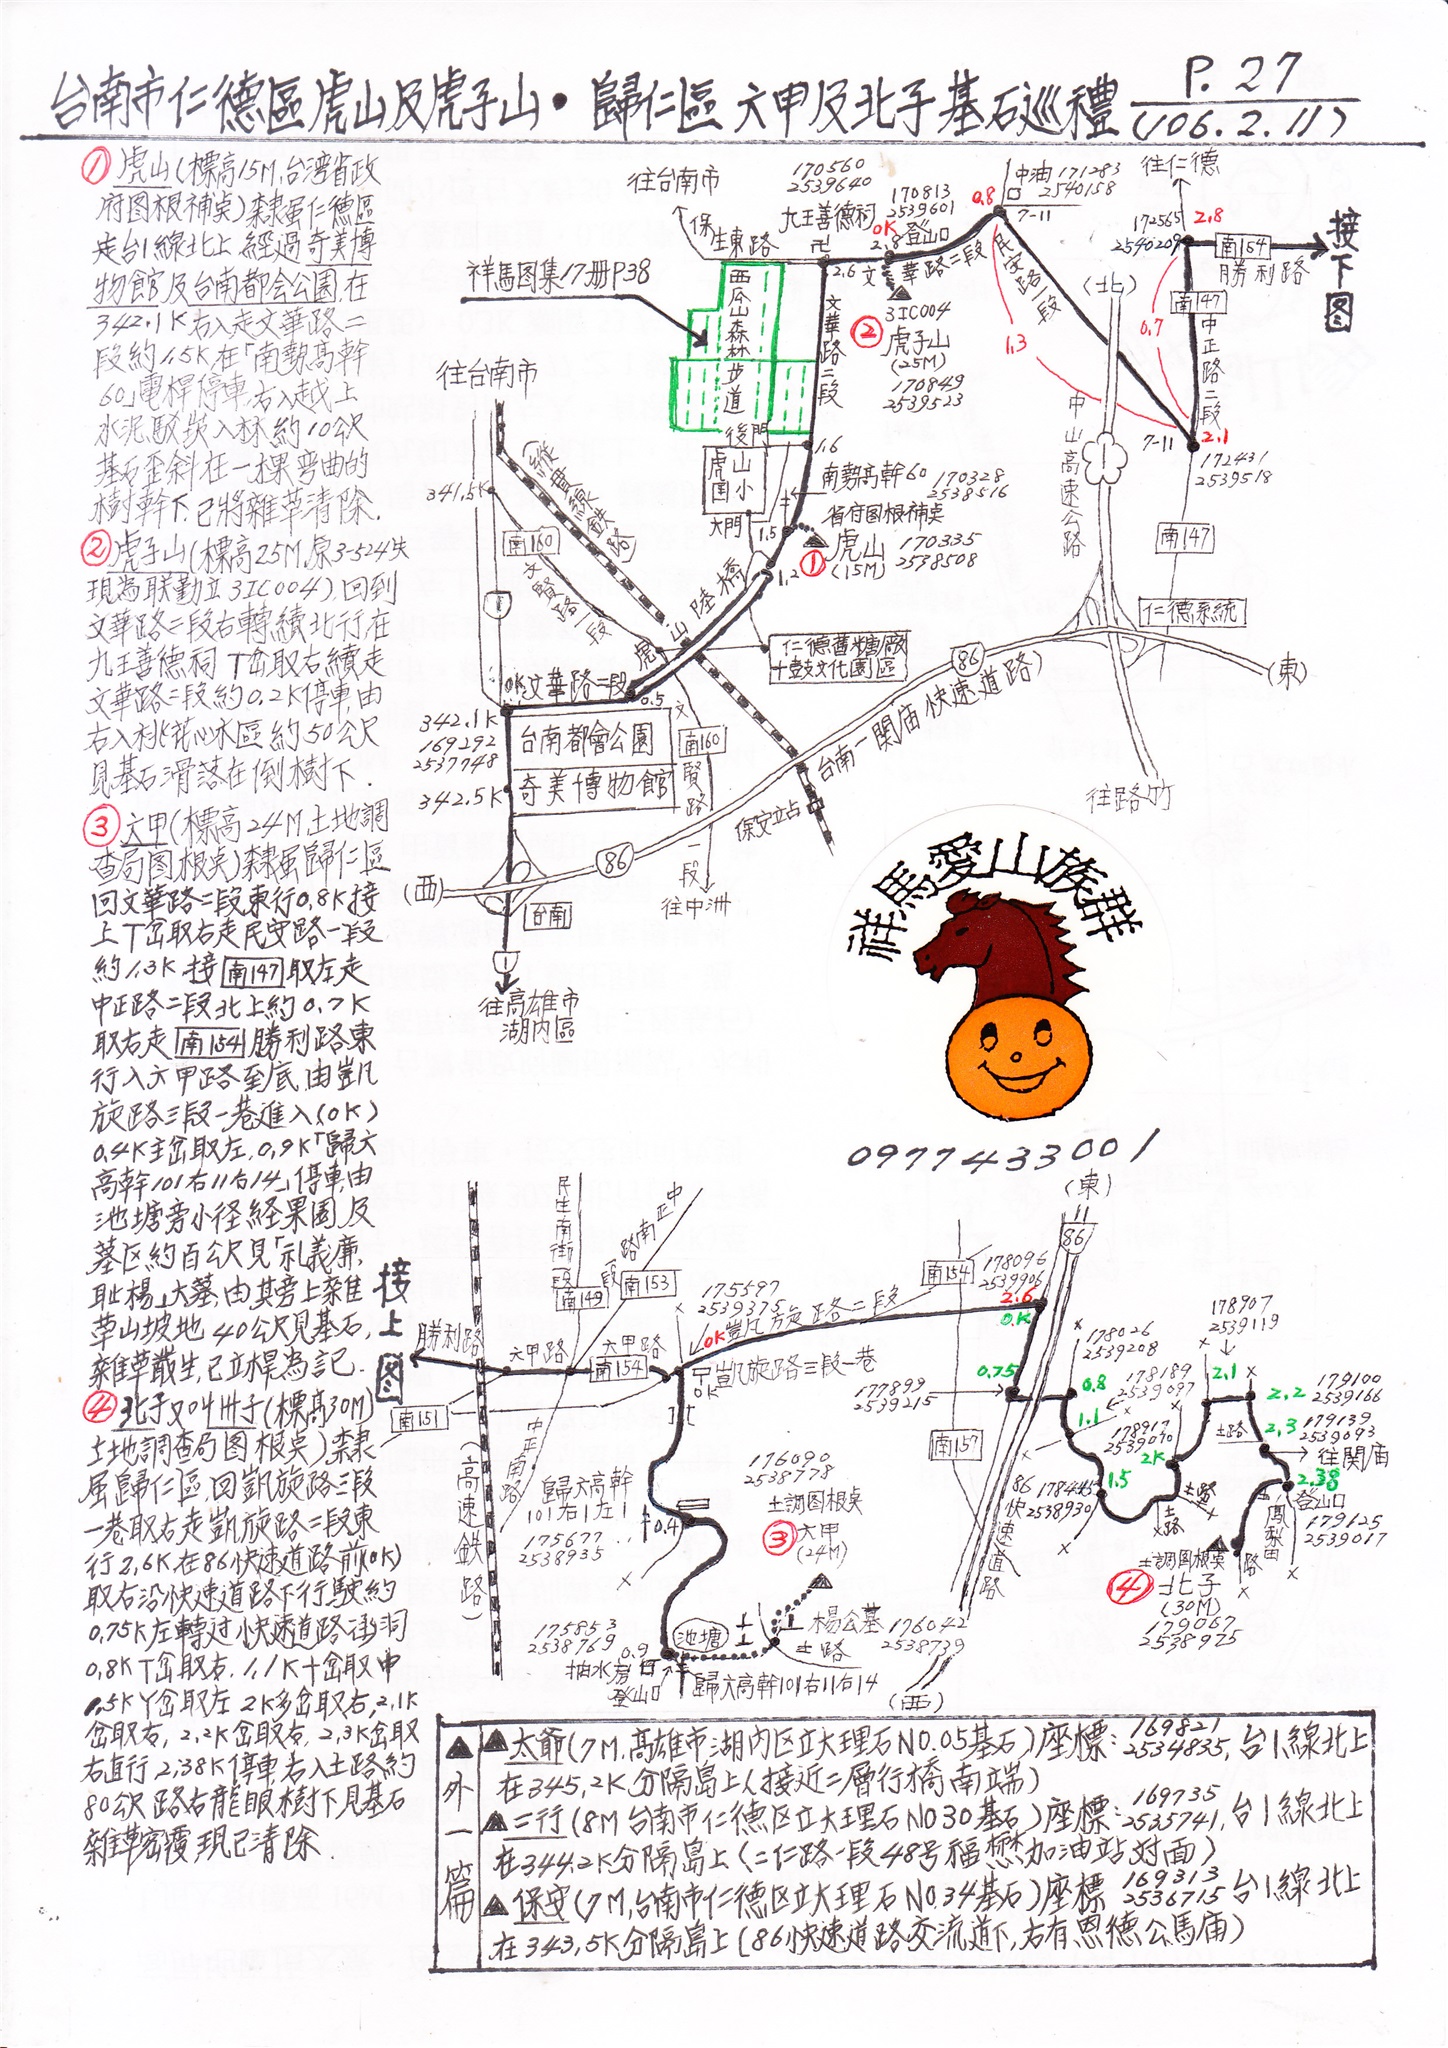 台南市仁德區虎山及虎子山·歸仁區六甲及北子基石巡禮
P.27
(106.2.11)
①虎山(標高15M,台湾省政
府图根補点)隸屬仁德區
走台1線北上 經過奇美博
物館及台南都会公園,在
342.1K右入走文華路二
段約1.5K,在「南勢高幹
60」電桿停車,右入越上
水泥駁崁入林約10公尺
基石歪斜在一棵弯曲的
樹幹下,已將雜草清除.
②虎子山(標高25M,原3-524失
現為联勤立3IC004),回到
文華路二段右轉續北行,在
九王善德祠丁岔取右續走
文華路二段約0.2K停車,由
右入 區約50公尺
見基石滑落在倒樹下.
③六甲(標高24M土地調
查局图根点)隸屬歸仁區
回文華路二段東行0.8K接
上丁岔取右走民安路一段
約1.3K接南147取左走
中正路二段北上約0.7K
取右走南154勝利路東
行入六甲路至底,由凱
旋路三段一巷進入(0K)
0.4K主岔取左,0.9K「歸六
高幹101右11右14」停車,由
池塘旁小径経果園及
墓区約百公尺見「礼義廉
耻楊」大墓,由其旁上雜
草山坡地40公尺見基石,
雜草叢生,已立桿為記.
④北子又叫卅子(標高30M)
土地調查局图根点)隸
屬歸仁區,回凱旋路三段
一巷取右走凱旋路二段東
行2.6K在86快速道路前(0K)
取右沿快速道路下行駛約
0.75K左轉过快速道路涵洞
0.8K丁岔取右.1.1K十岔取中
1.5K丫岔取左 2K多岔取右,2.1K
岔取右,2.2K岔取右,2.3K岔取
右直行2.38K停車右入土路約
80公尺路右龍眼樹下見基石
雜草密覆現已清除.
往台南市
保生東路
170560
2539640
九王善德祠
卍
2.6
170813
2539601
登山口
0K
2.8
文華路二段
0.8
中油171283
2540158
7-11
民安路一段
往仁德
172565
2540209
2.8
南154
勝利路
接下图
南147
中正路二段
0.7
1.3
(北)
中山高速公路
1
7-11
2.1
172431
2539518
南147
仁德系統
(東)
往路竹
祥馬图集17册P38
西瓜山森林步道
後門
文華路二段
3IC004
②虎子山
(25M)
170849
2539523
1.6
虎山國小
大門
南勢高幹60
170328
2538516
省府图根補点
1.5
①虎山
(15M)
170335
2538508
1.2
虎山陸橋
仁德舊糖廠
十鼓文化園區
往台南市
(縱貫線鉄路)
341.5K
南160
文賢路一段
1
0K
文華路二段
0.5
342.1K
169292
2537748
台南都會公園
奇美博物館
342.5K
文賢路一段
南160
往中洲
86
台南一関庙快速道路)
保安站
(西)
86
台南
1
往高雄市
湖内區
祥馬愛山族群
0977433001
接上图
勝利路
六甲路
六甲路
南154
民生南街一段
南149
中正南路一段
南153
南151
中正南路
(高速鉄路)
175597
2539375
0K
凱旋路二段
凱旋路三段一巷
0K
南154
178096
2539906
2.6
0K
(東)
86
0.75
177899
2539215
南157
86快速道路
(西)
歸六高幹
101右1左1
175677
2538935
0.4
176090
2538778
土調图根点
③六甲
(24M)
175853
2538769
0.9
抽水房
登山口
池塘
楊公墓
土路
176042
2538739
歸六高幹101右11右14
0.8
178026
2539208
1.1
178189
2539097
178445
2538930
1.5
178917
2539040
2K
土路
土路
178907
2539119
2.1
土路
2.2
179100
2539166
2.3
179139
2539093
往関庙
2.38
登山口
179125
2539017
鳳梨田
土調图根点
④北子
(30M)
179067
2538975
土路
▲外一篇
▲太爺(7M,高雄市湖内区立大理石NO.05基石)座標:169821
2534835,台1線北上
在345.2K,分隔島上(接近二層行橋南端)
▲二行(8M台南市仁德区立大理石NO30基石)座標:169735
2535741,台1線北上
在344.2K分隔島上(二仁路一段48号福懋加油站对面)
▲保安(7M,台南市仁德区立大理石NO.34基石)座標169313
2536715台1線北上
在343.5K分隔島上(86快速道路交流道下,右有恩德公馬庙)